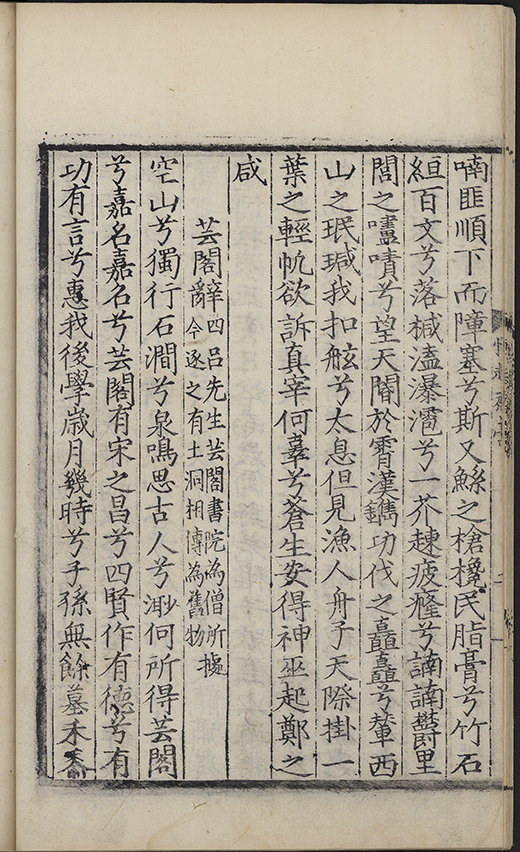 喃匪順下而障塞兮斯又鯀之槍攙民脂膏兮竹石
絙百文兮落椷溘瀑灑兮一芥疲癃兮諵諵欝里
閭之嚍嘖兮望天閽於霄漢鐫功伐之矗矗兮輦西
山之珉瑊我扣舷兮太息但見漁人舟子天際掛一
葉之輕帆欲訴真宰何辜兮蒼生安得神巫起鄭之
咸
芸閣辭 四呂先生芸閣書院為僧所據
今逐之有土洞相傳為舊物
空山兮獨行石澗兮泉鳴思古人兮渺何所得芸閣
兮嘉名嘉名兮芸閣有宋之昌兮四賢作有德兮有
功有言兮惠我後學歲月幾時兮子孫無餘墓禾黍